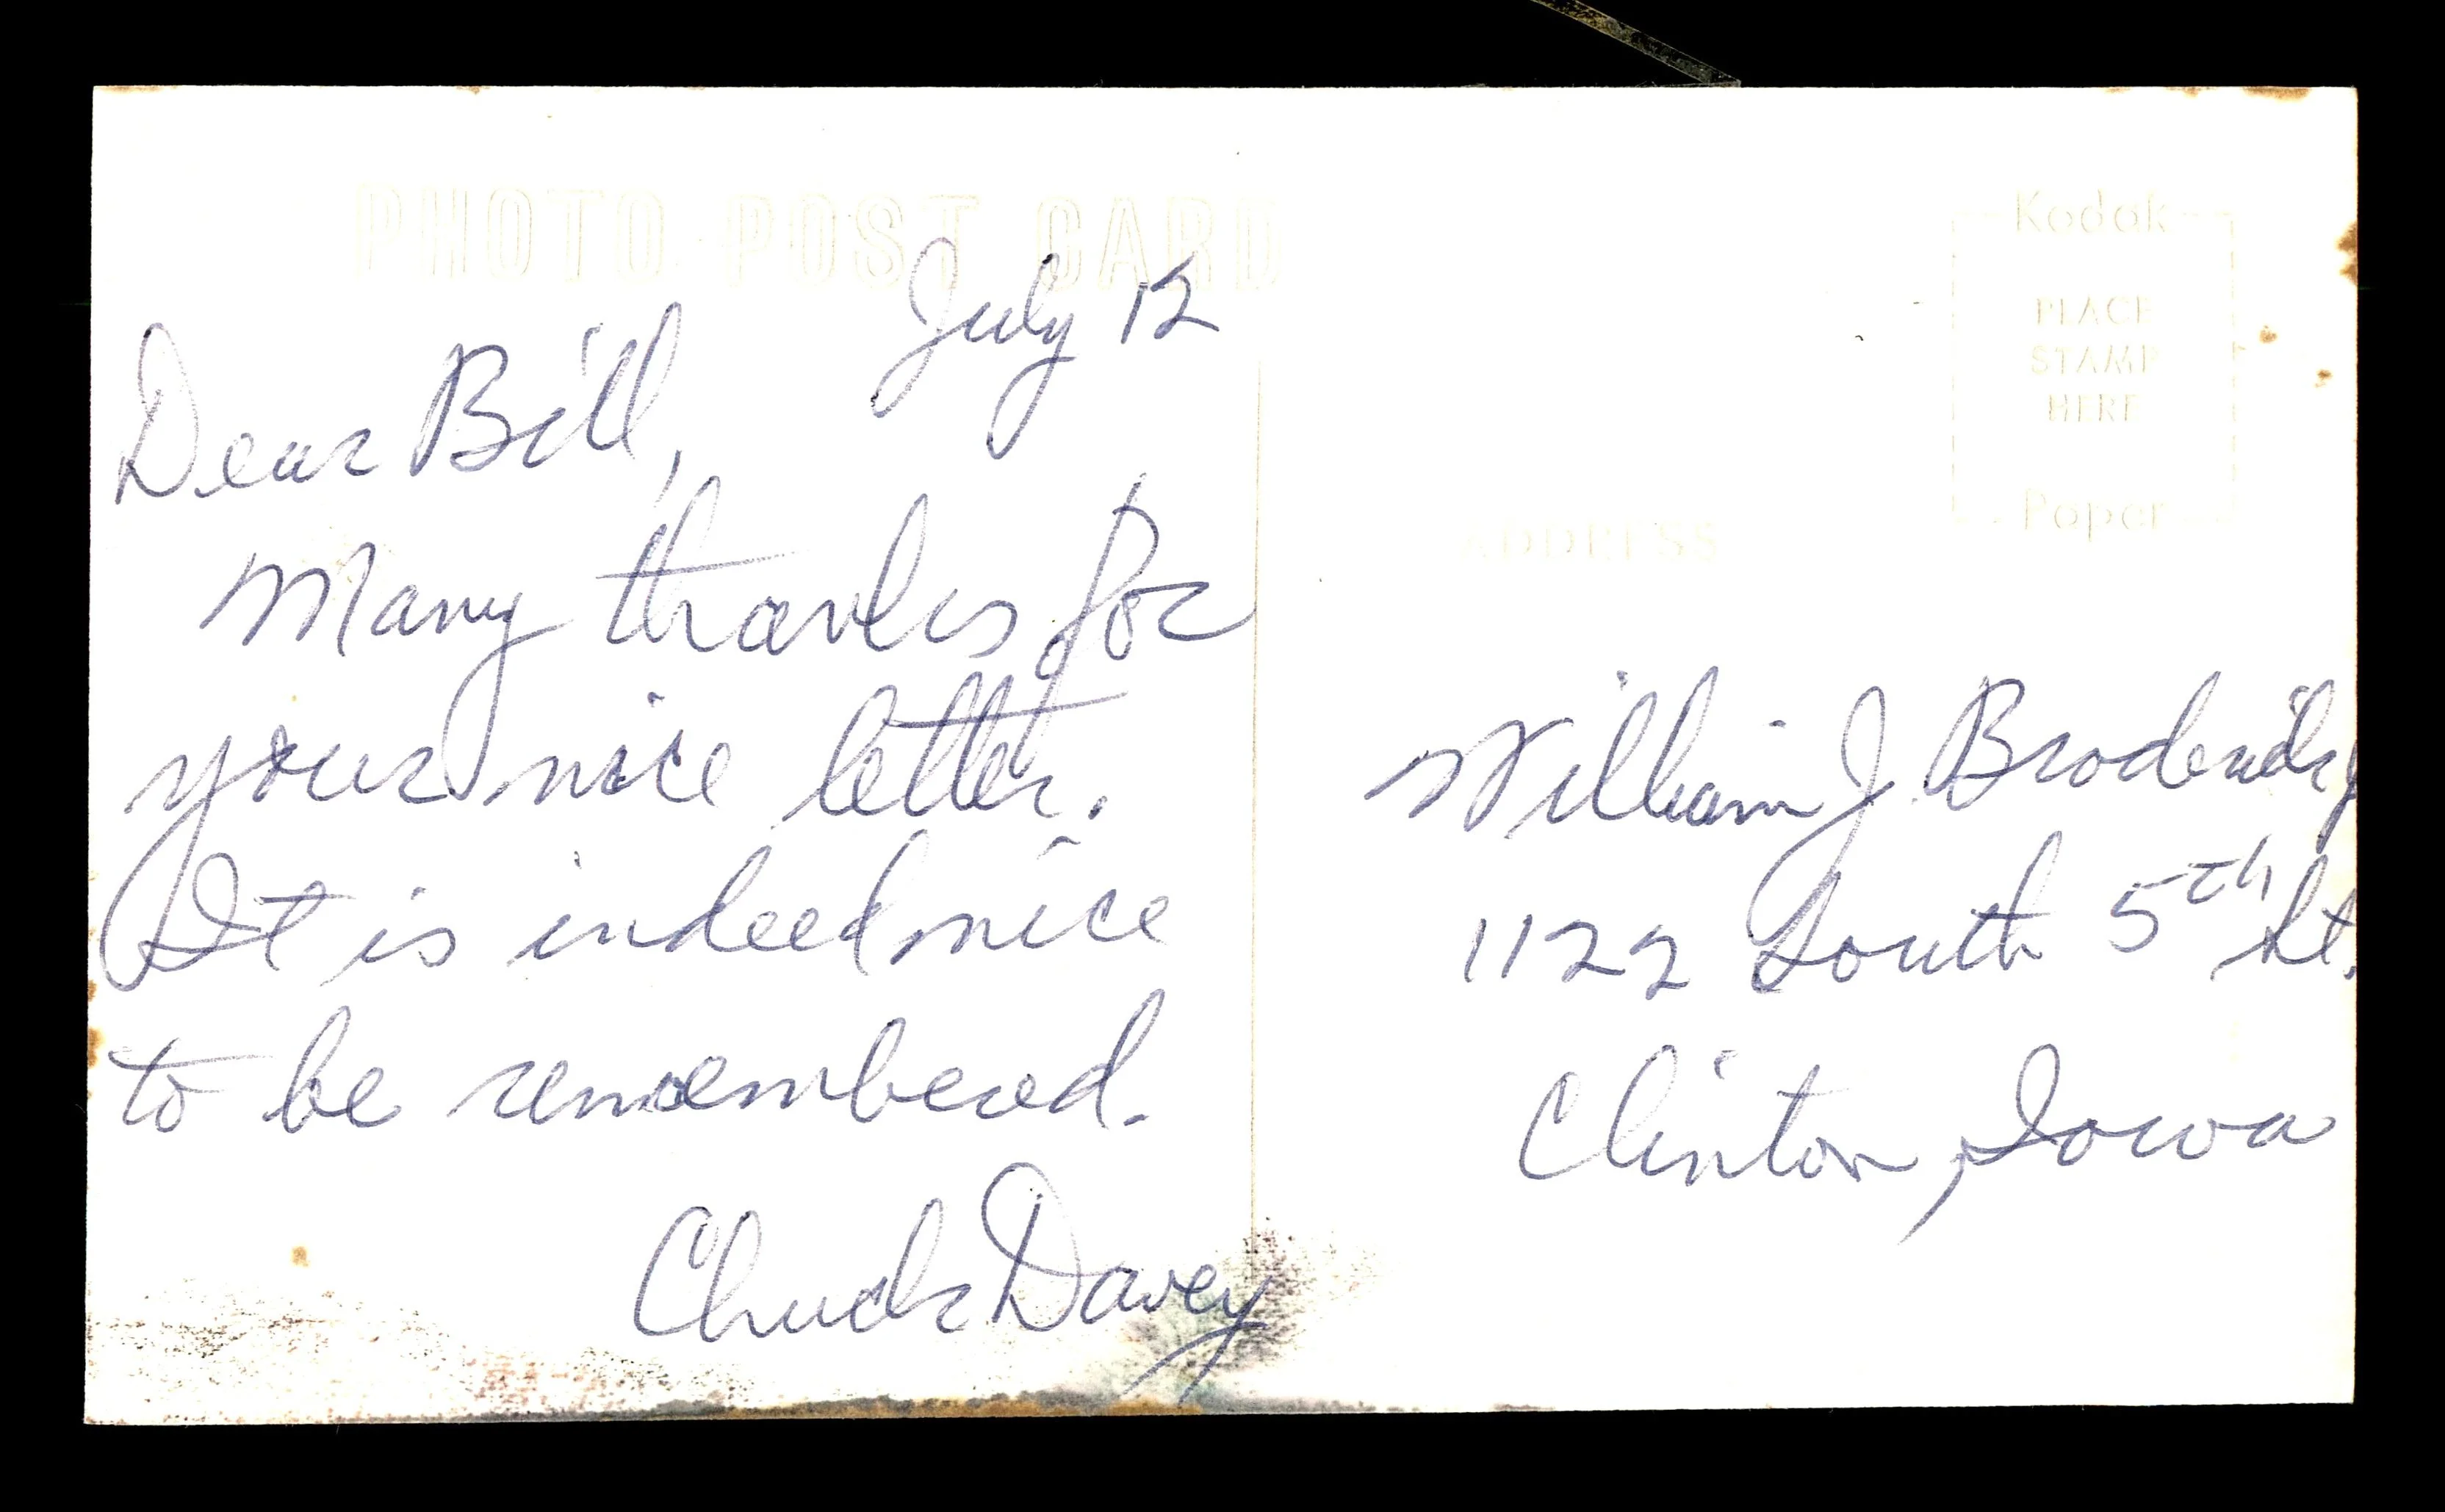 PHOTO POST CARD
July 12
Dear Bill,
Many thanks for
your nice letter.
It is indeed nice
to be remembered.
Chuck Davey
Kodak
PLACE
STAMP
HERE
Paper
ADDRESS
William J. Broderick
1122 South 5th St.
Clinton, Iowa